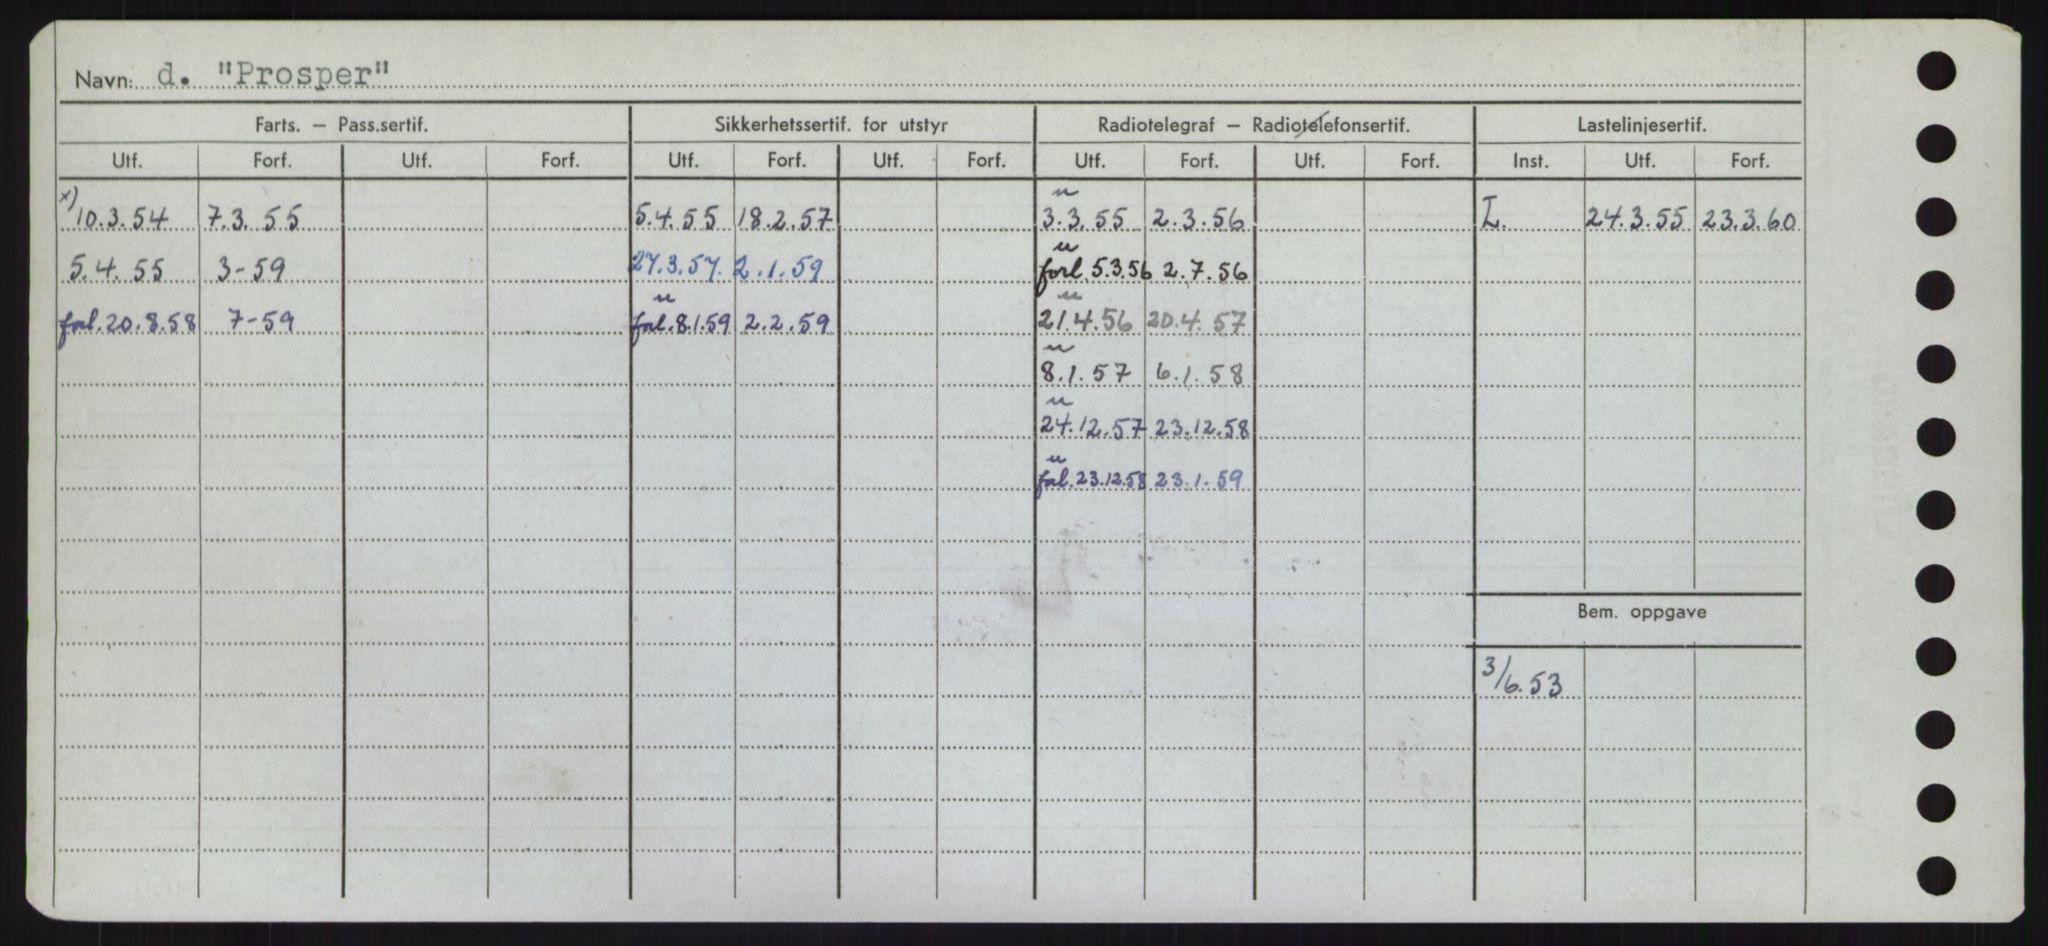 Navn: d. "Prosper"
Farts. — Pass.sertif. Sikkerhetssertif. for utstyr Radiotelegraf — Radiotelefonsertif. Lastelinjesertif.
Utf. Forf. Utf. Forf. Utf. Forf. Utf. Forf. Utf. Forf. Utf. Forf. Inst. Utf. Forf.
x) u
10.3.54 7.3.55 5.4.55 18.2.57 3.3.55 2.3.56 L. 24.3.55 23.3.60
u
5.4.55 3-59 27.3.57. 2.1.59 forl. 5.3.56 2.7.56
u u
forl. 20.8.58 7-59 forl. 8.1.59 2.2.59 21.4.56 20.4.57
u
8.1.57 6.1.58
u
24.12.57 23.12.58
u
forl. 23.12.58 23.1.59
Bem. oppgave
3/6.53